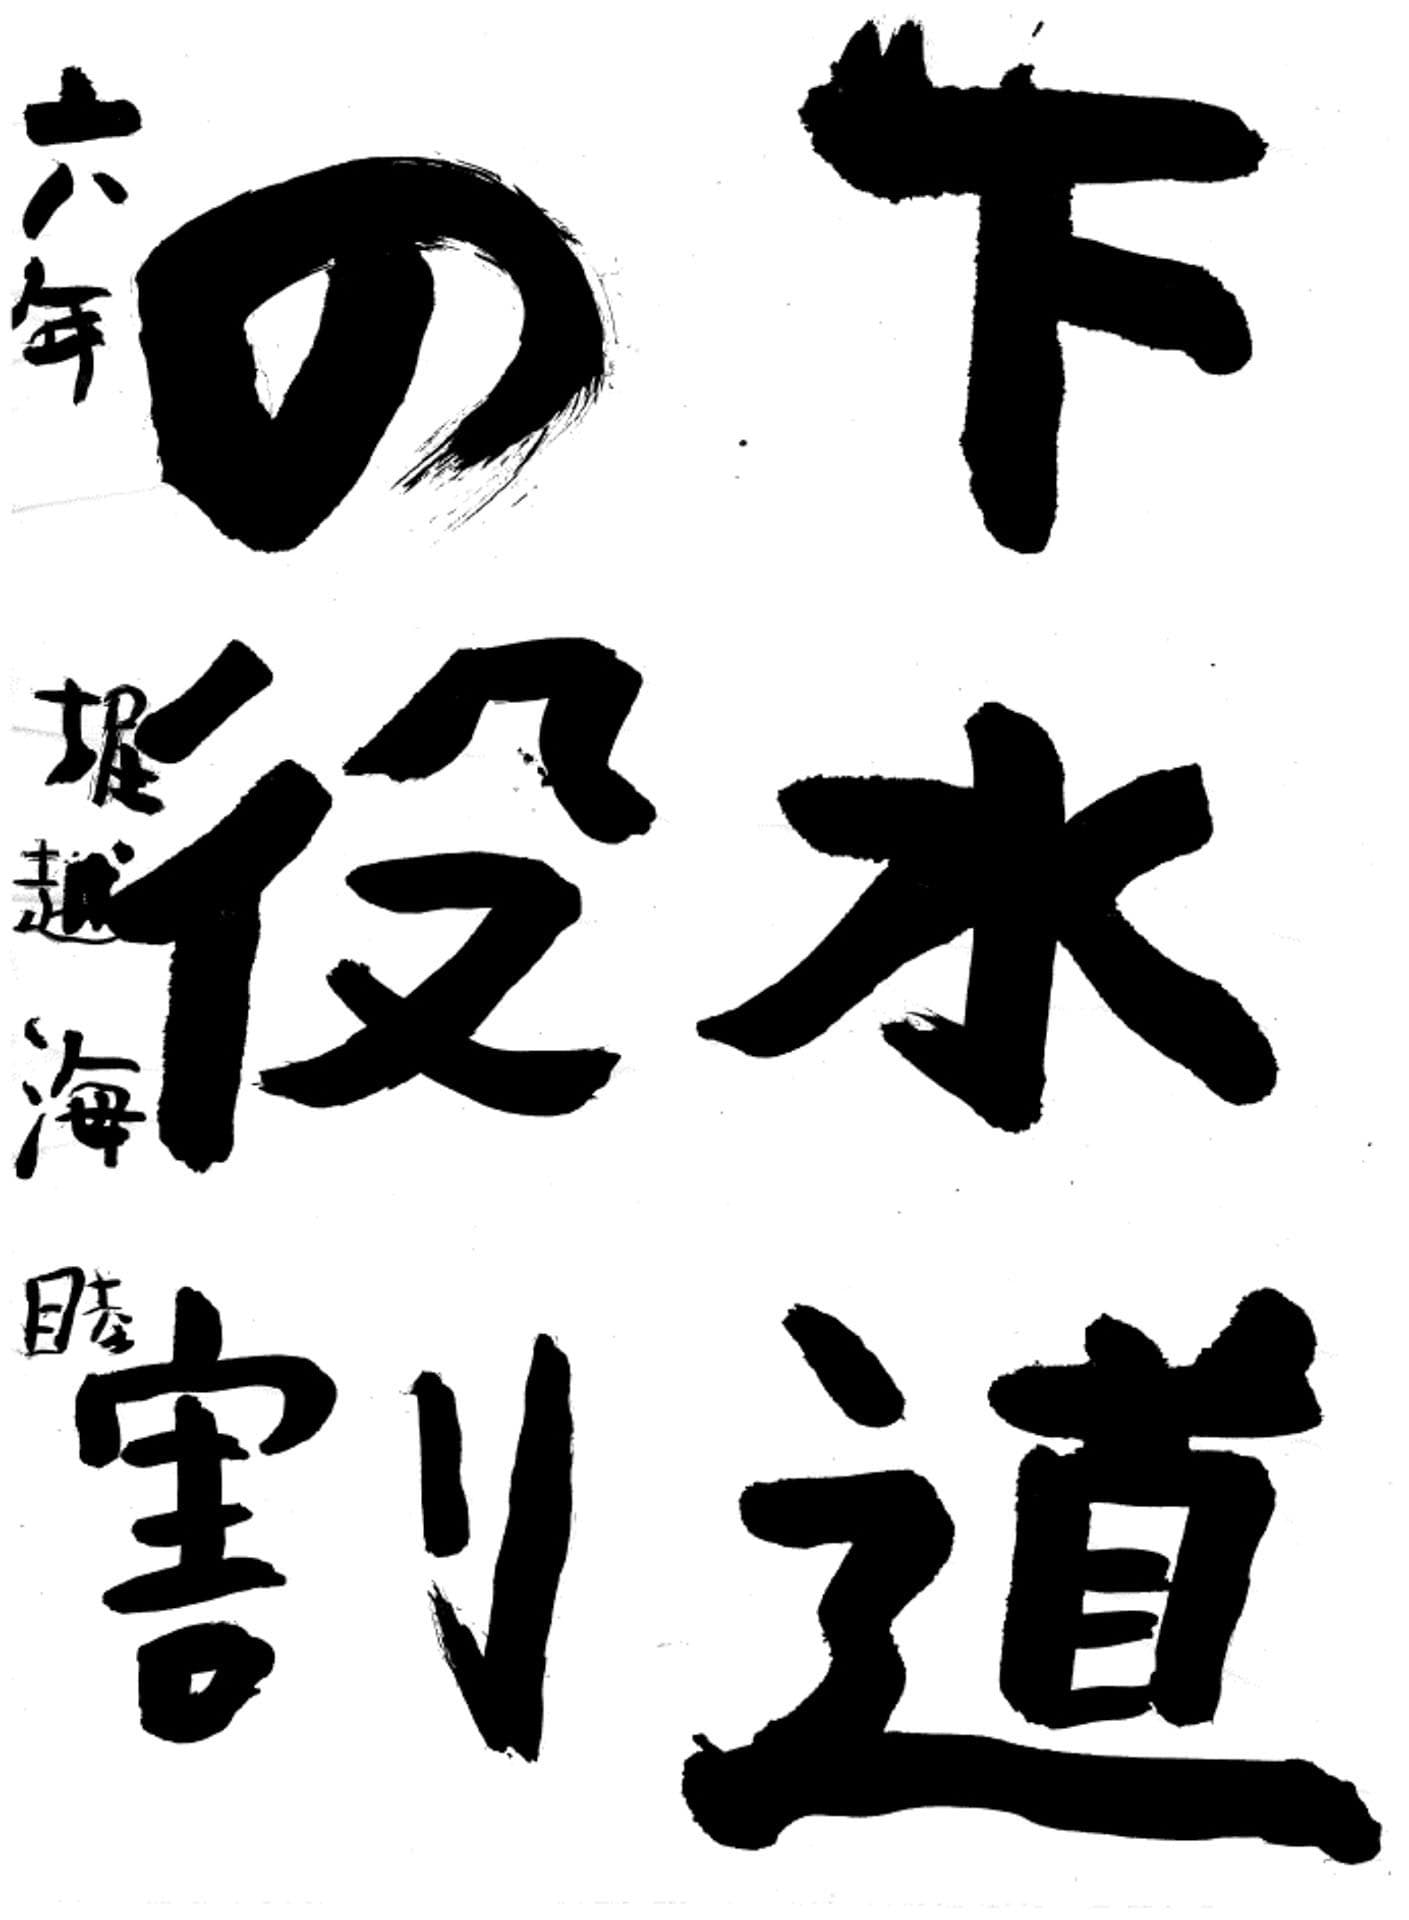 下水道
の役割
六年 堀越海睦